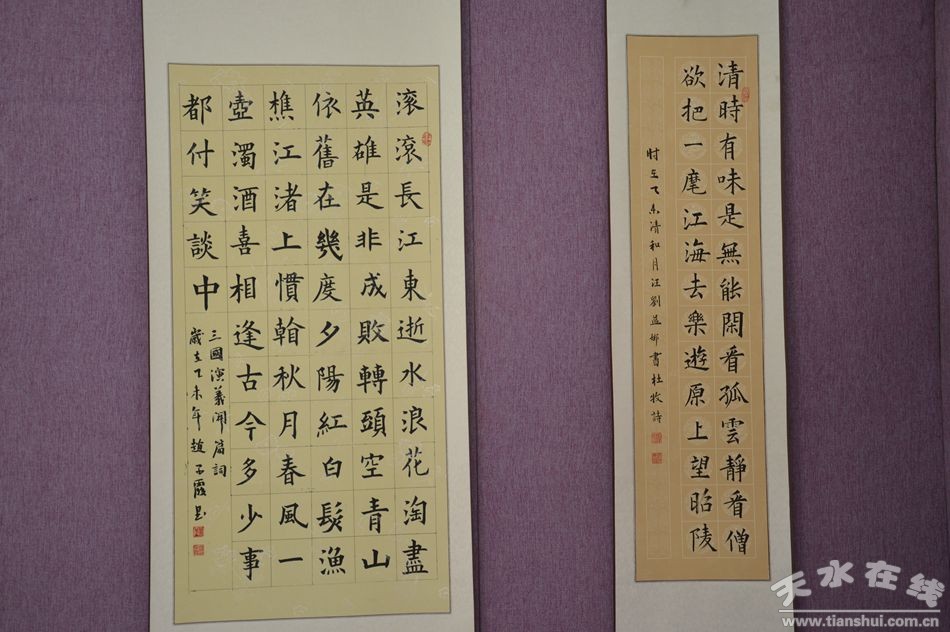 清時有味是無能閑看孤雲靜看僧
欲把一麾江海去樂遊原上望昭陵
时在乙未清和月汪劉益書杜牧詩
滚滚長江東逝水浪花淘盡
英雄是非成敗轉頭空青山
依舊在幾度夕陽紅白髮漁
樵江渚上慣翰秋月春風一
壺濁酒喜相逢古今多少事
都付笑談中
三國演義開篇詞
歲在乙未年趙子霞
天水在线
www.tianshui.com.cn